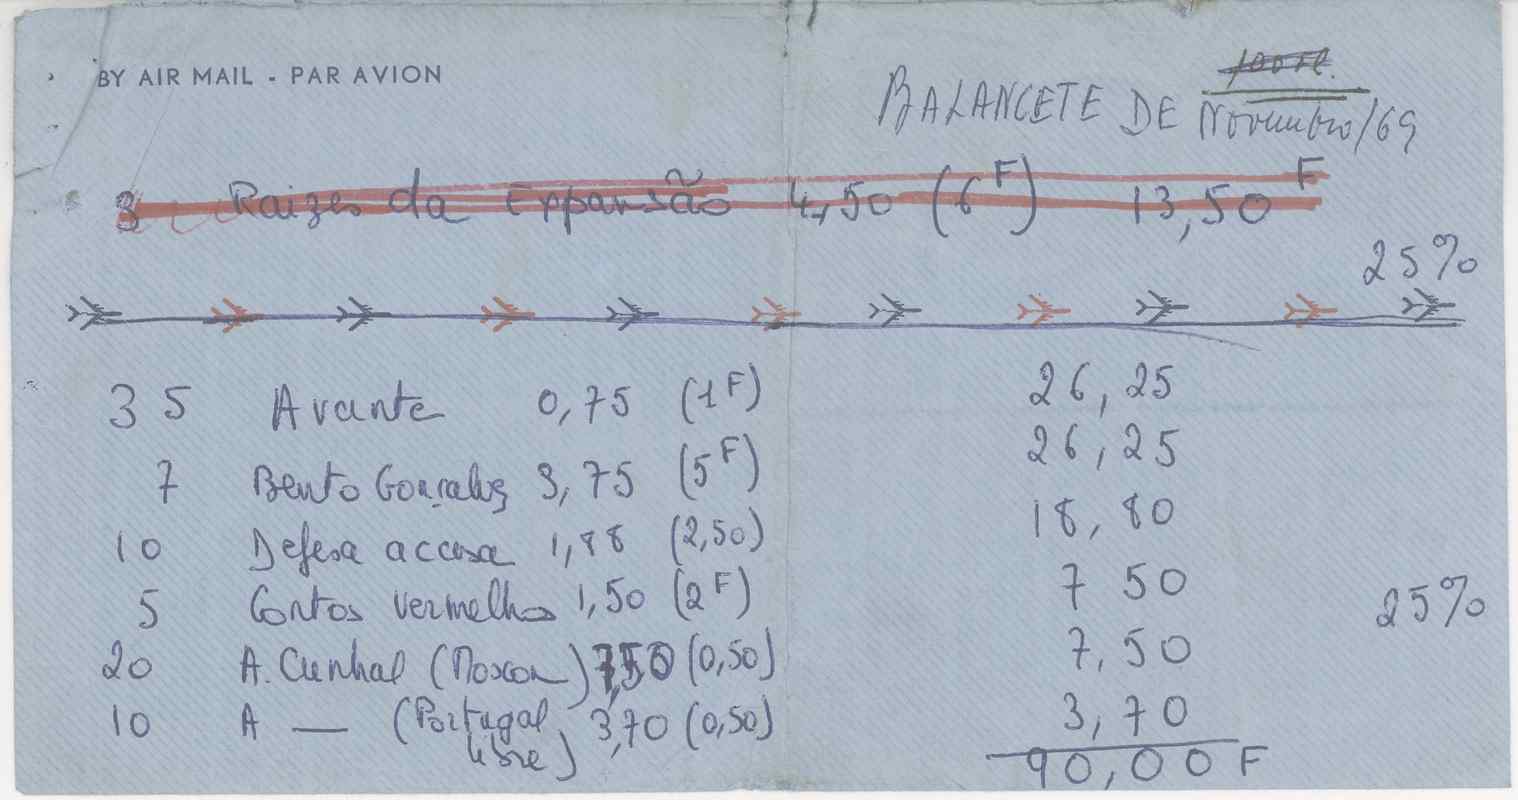 BY AIR MAIL - PAR AVION
BALANCETE DE Novembro/69
3 Raizes da Expansão 4,50 (6F) 13,50F
25%
35 Avante 0,75 (1F) 26,25
7 Bento Gonçalves 3,75 (5F) 26,25
10 Defesa accusa 1,88 (2,50) 18,80
5 Contos vermelhos 1,50 (2F) 7 50
25%
20 A. Cunhal (Moscou) 7,50 (0,50) 7,50
10 A — (Portugal libre) 3,70 (0,50) 3,70
90,00 F